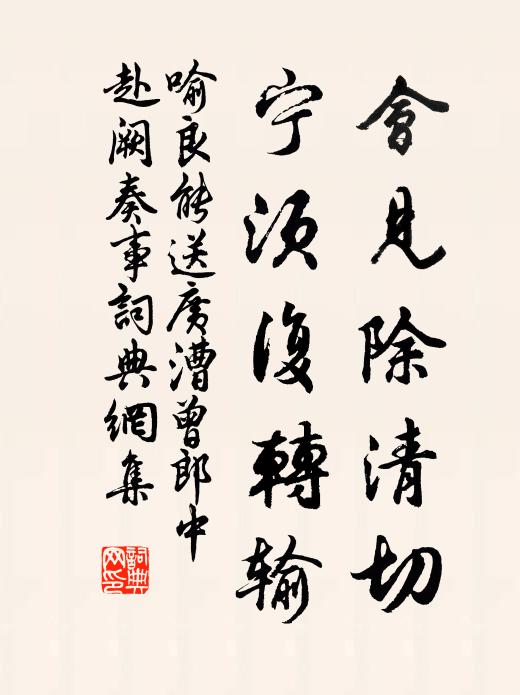 會見除清切
宁須復轉输
喻良能送廣漕曾郎中
赴阙奏事詞典網集
詞典
网印